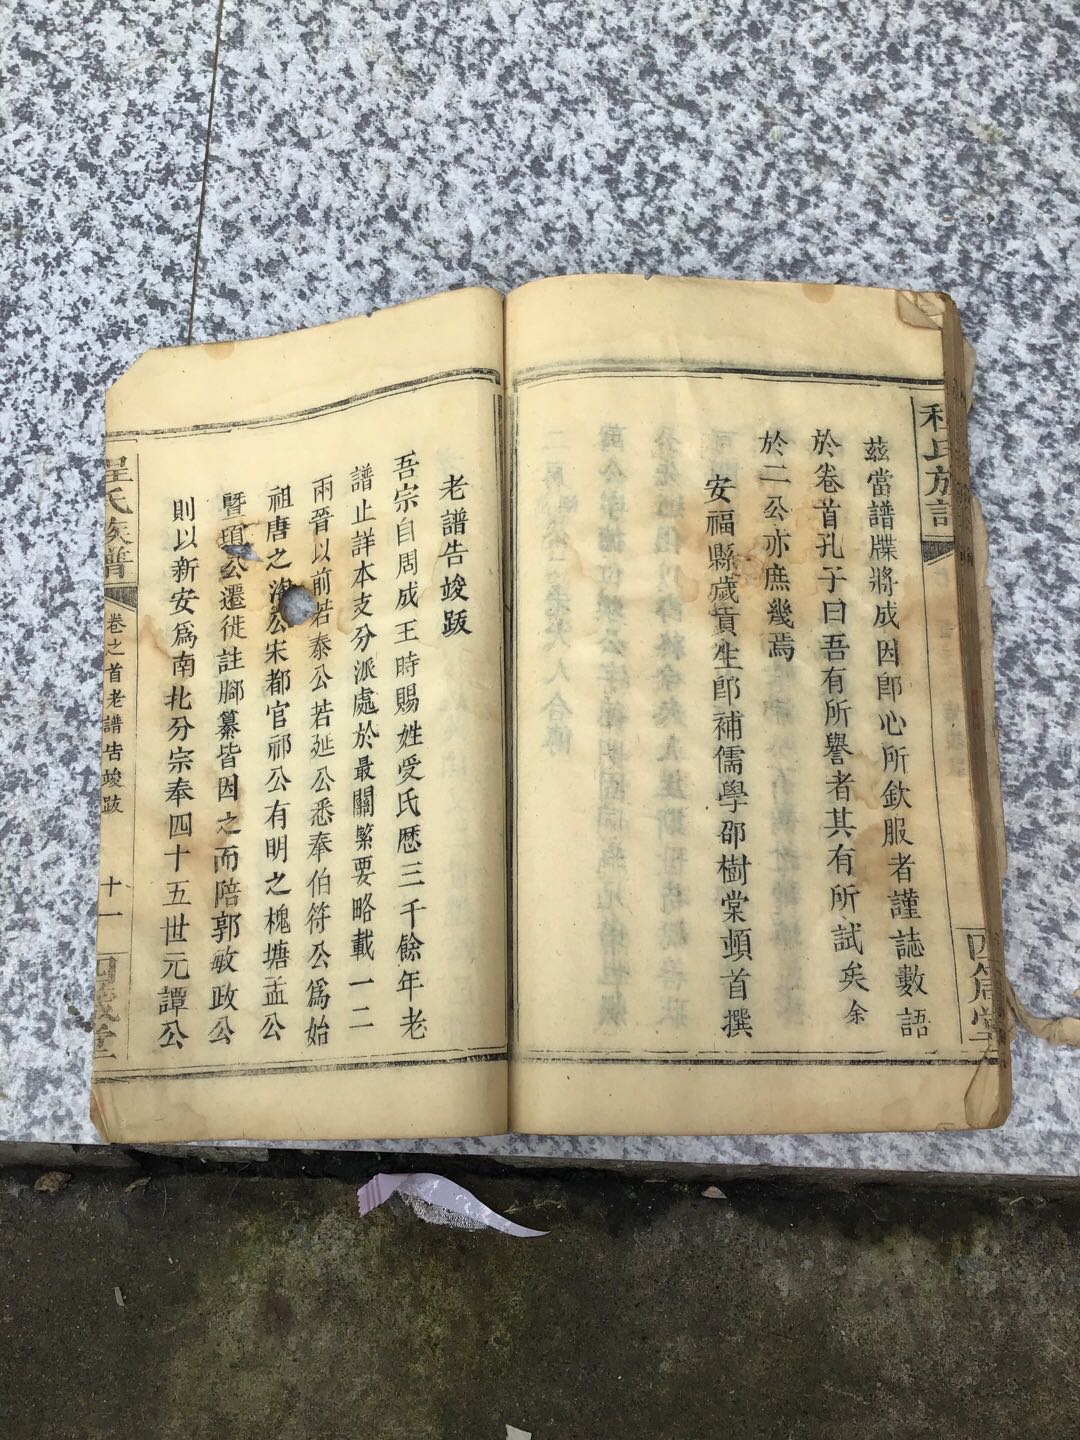 茲當譜牒將成因郎心所欽服者謹誌數語
於卷首孔子曰吾有所譽者其有所試矣余
於二公亦庶幾焉
安福縣歲貢生卽補儒學邵樹棠頓首撰
老譜告竣跋
吾宗自周成王時賜姓受氏歷三千餘年老
譜止詳本支分派處於最關緊要略載一二
兩晉以前若泰公若延公悉奉伯符公爲始
祖唐之公宋都官祁公有明之槐塘孟公
暨項公遷徙註腳纂皆因之而陪郭敏政公
則以新安爲南北分宗奉四十五世元譚公
程氏族譜
卷之首老譜告竣跋
十一